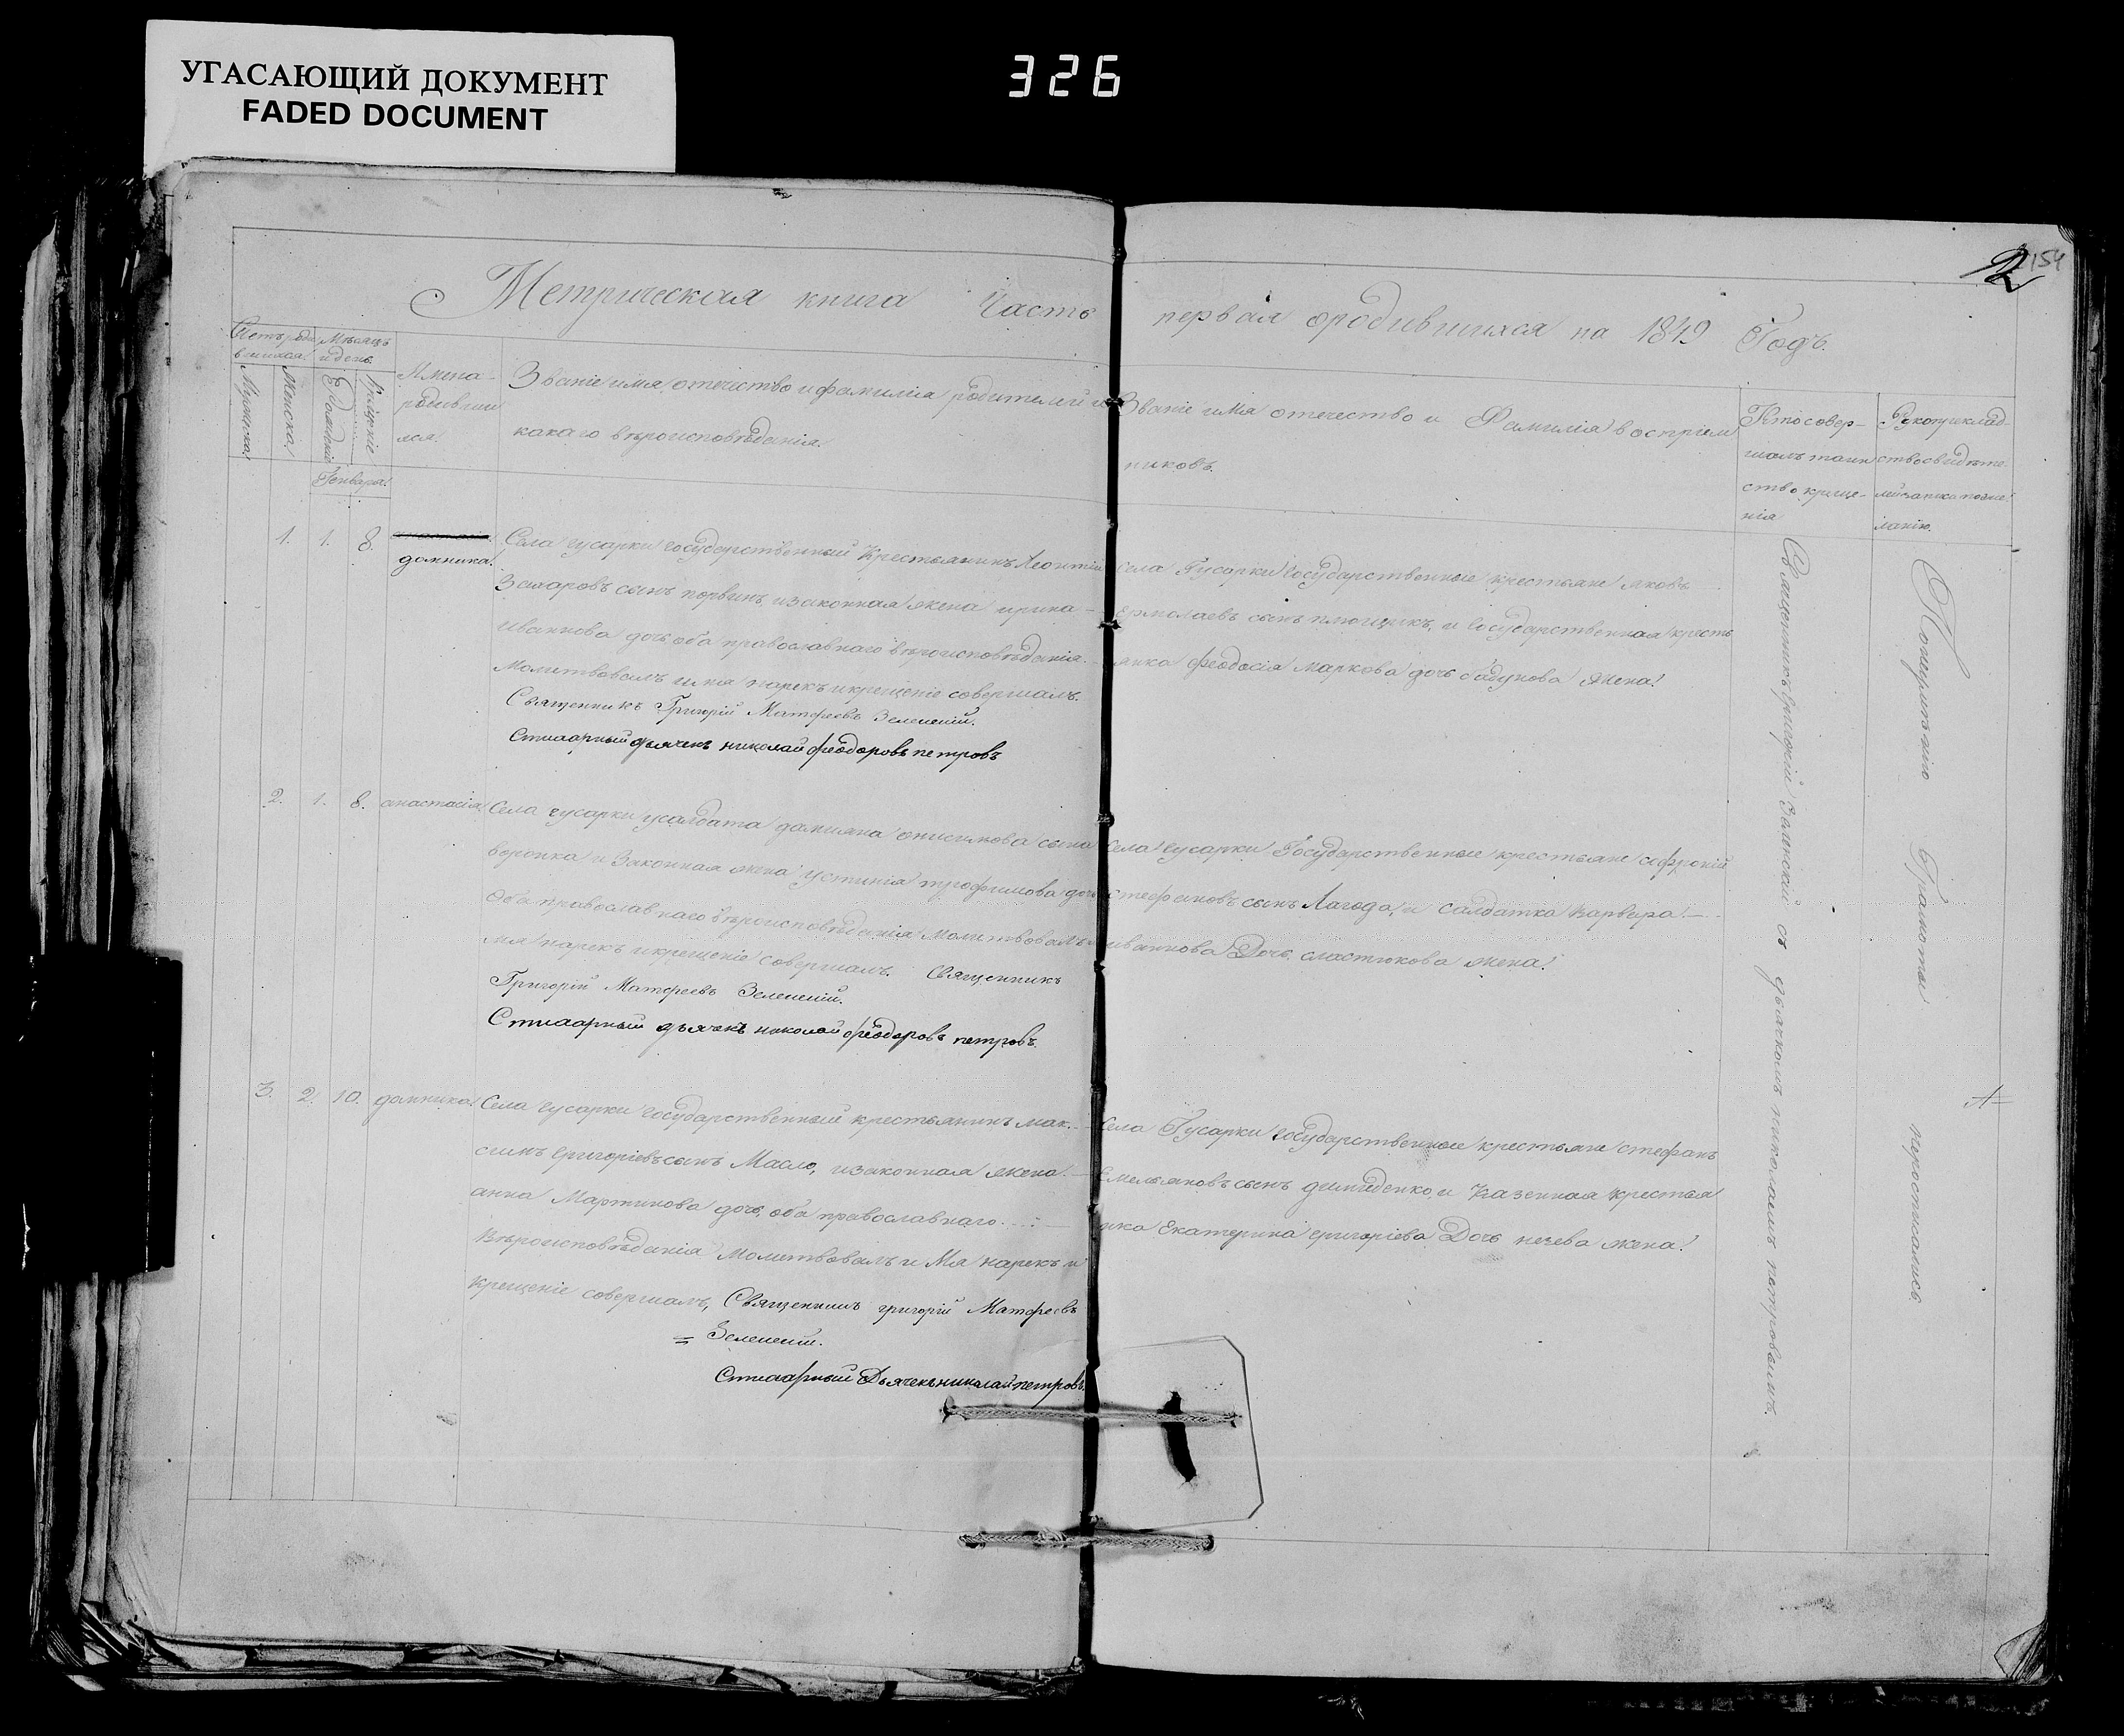 УГАСАЮЩИЙ ДОКУМЕНТ
FADED DOCUMENT
326
2
154
Метрическая книга Часть первая ородившихся на 1849 Годъ.
Счетъ роди
вшихся.
Мужеска.
Женска.
Мѣсяцъ
и день.
Рожденіе
Крещеніе
Генваря.
Имена
родивши
хся.
Званіе имя, отечество и фамилія родителей и
какаго вѣроисповѣданія.
Званіе имя отечество и Фамилія восприем
никовъ.
Кто совер-
шалъ таин
ство креще-
нія
Рукоприклад-
ство свидѣте.
лей записи поже.
ланію.
1. 1. 8.
домника.
Села гусарки государственный Крестьянинъ Леонтій
Захаровъ сынъ изаконная жена ирина
Иванова дочь оба православнаго вѣроисповѣданія.
Молитвовалъ имя нарекъ икрещеніе совершалъ.
Священникъ Григорій Матфеевъ Зеленскій.
Стихарный дьячекъ николай феодоровъ петровъ
Села Гусарки государственные крестьяне яковъ
Ермолаевъ сынъ и государственная кресть
янка феодосія маркова дочь бабунова жена.
2. 1. 8. анастасія.
Села гусарки усалдата дамияна онисимова сына
воронка и Законная жена устинія трофимова дочь
Оба православнаго вѣроисповѣданія молитвовалъ и
мя нарекъ икрещеніе совершалъ. Священникъ
Григорій Матфеевъ Зеленскій.
Стихарный дьячекъ николай феодоровъ петровъ.
Села гусарки Государственные крестьяне
стефановъ сынъ Лагода, и салдатка варвара
иваннова Дочь сластюкова жена.
3. 2. 10. домника.
Села гусарки государственный крестьянинъ мак-
симъ григоріевъ сынъ Масло, изаконная жена
анна Мартинова дочь, оба православнаго
Вѣроисповѣданія Молитвовалъ и Мя нарекъ и
крещеніе совершалъ, Священникъ григорій Матфеевъ
Зеленскій.
Стихарный Дьячекъ николай петровъ.
Села Гусарки государственные крестьяне стефанъ
Емельяновъ сынъ и Казенная крестья
нка Екатерина григоріева Дочь нечева жена.
Священникъ григорій Зеленскій съ дьячкомъ николаемъ петровымъ.
Понеумѣнію Грамоты неростисались.